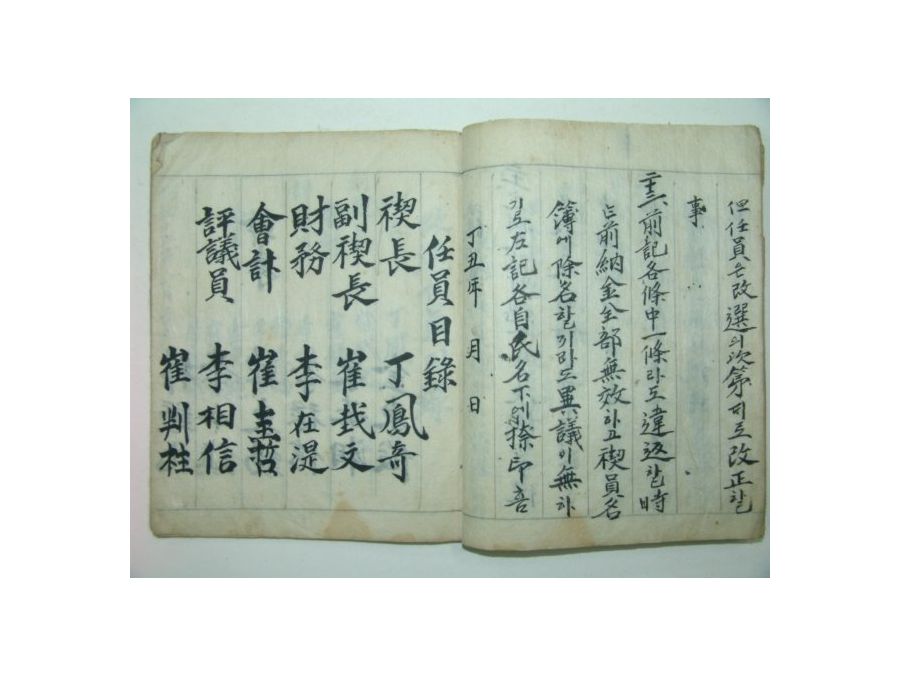 但任員은改選의次第저로改正할
事
二十三、前記各條中一條라도違返할時
는前納金全部無效하고禊員名
簿에除名할끼라도異議이無하
기로左記各自民名下에捺印喜
丁丑年 月 日
任員目錄
禊長 丁鳳奇
副禊長 崔 文
財務 李在湜
會計 崔 哲
評議員 李相信
崔判柱